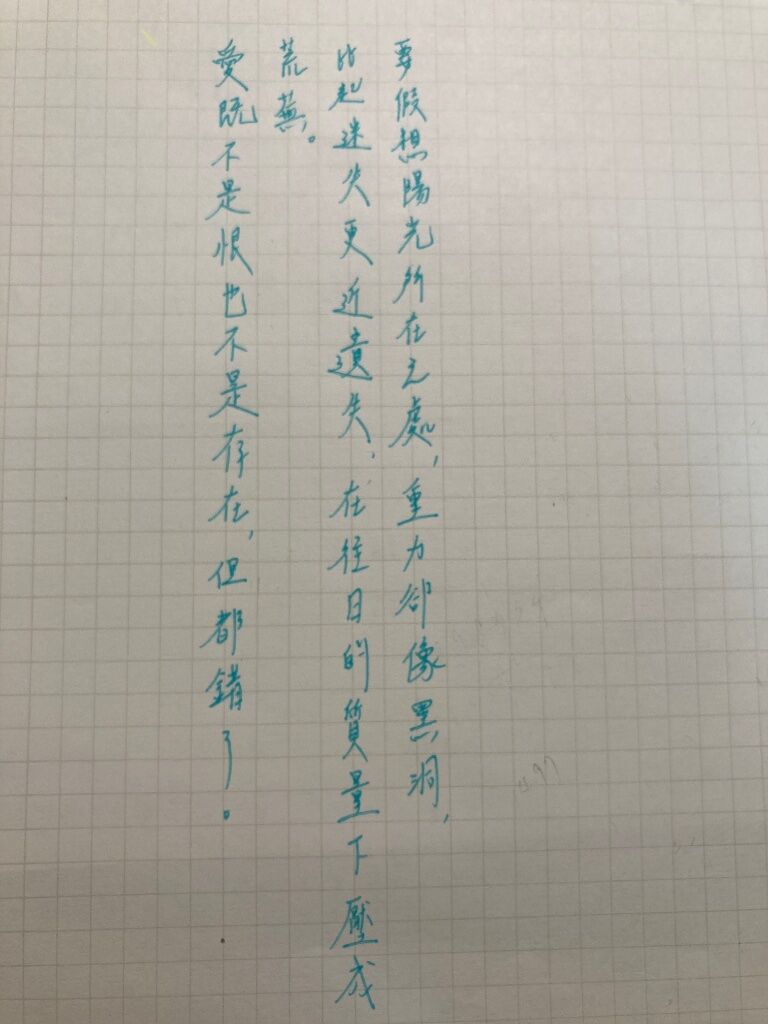 要假想陽光所在之處，重力卻像黑洞，
比起迷失更近遺失，在往日的質量下壓成
荒蕪。
愛既不是恨也不是存在，但都錯了。